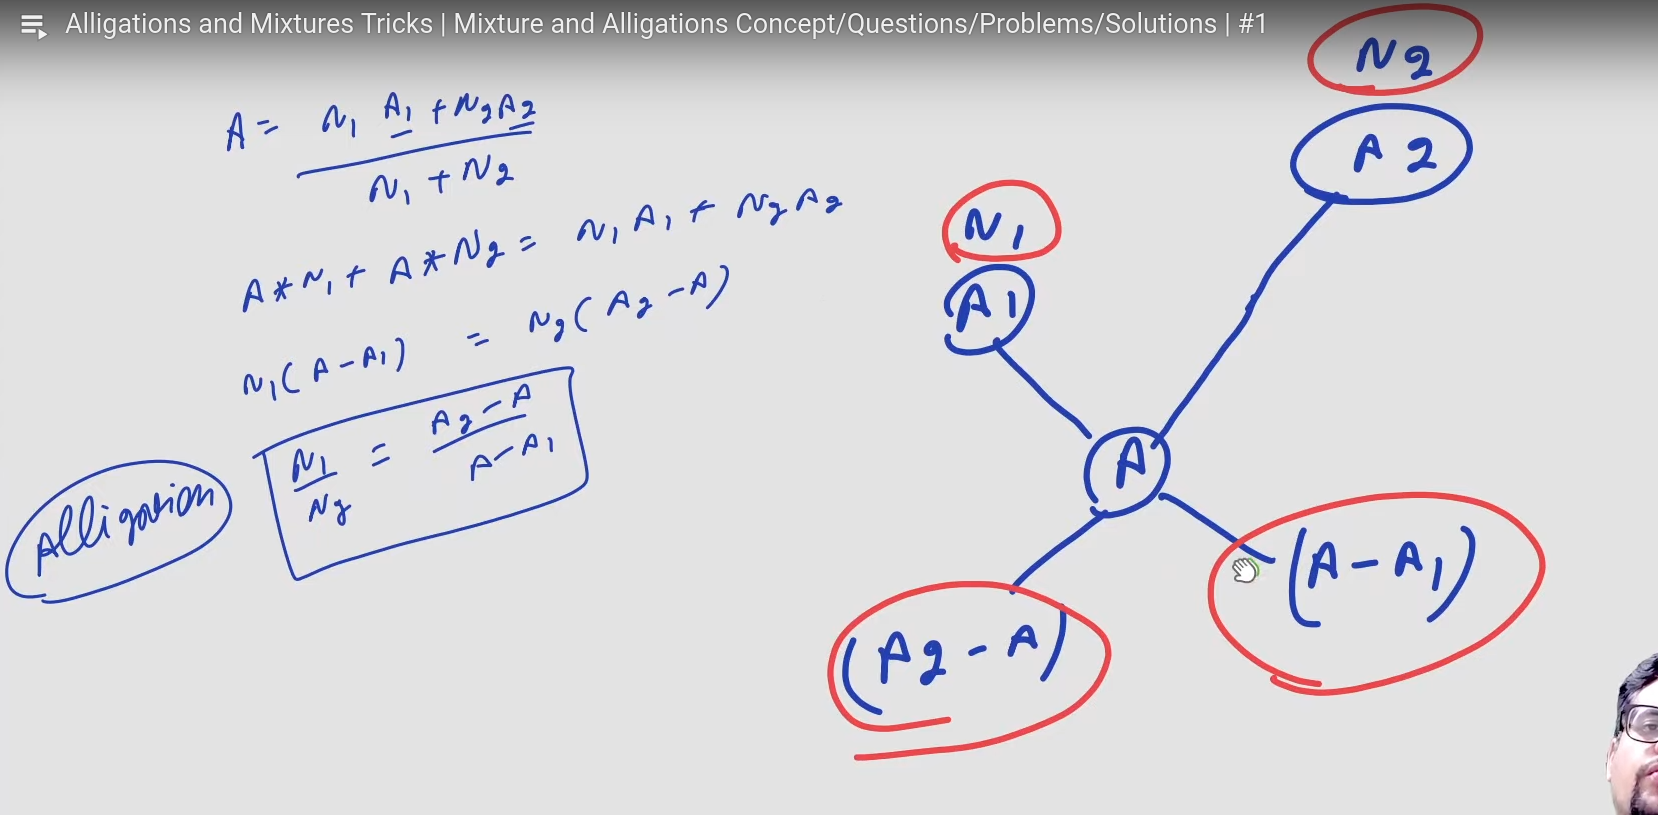 Alligations and Mixtures Tricks | Mixture and Alligations Concept/Questions/Problems/Solutions | #1
A = N1 A1 + N2 A2
N1 + N2
A * N1 + A * N2 = N1 A1 + N2 A2
N1 (A - A1) = N2 (A2 - A)
N1 = A2 - A
N2 A - A1
Alligation
N2
A2
N1
A1
A
(A - A1)
(A2 - A)